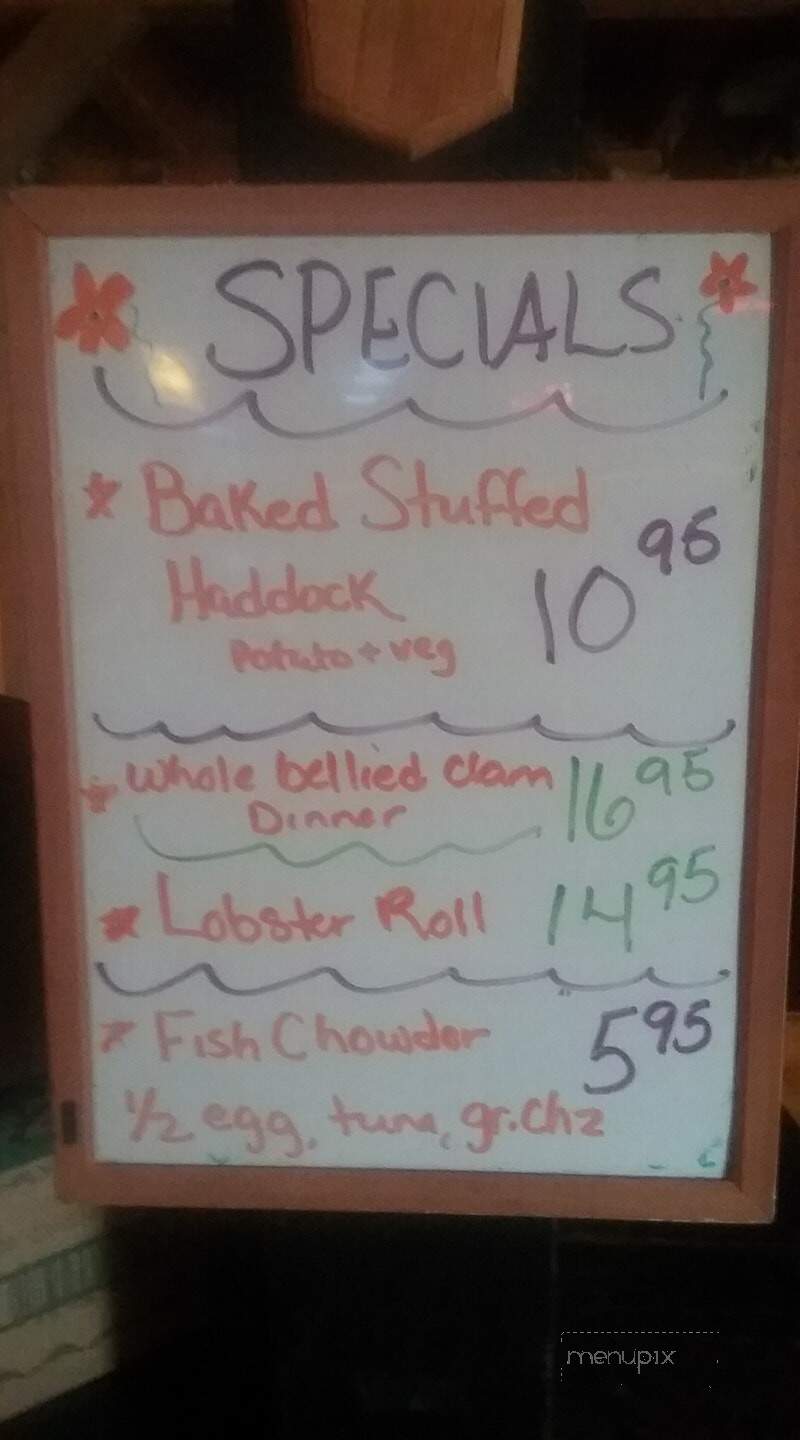 SPECIALS
* Baked Stuffed
Haddock 10 95
Potato + veg
* Whole bellied clam 16 95
Dinner
* Lobster Roll 14 95
* Fish Chowder 5 95
1/2 egg, tuna, gr. chz
menupix